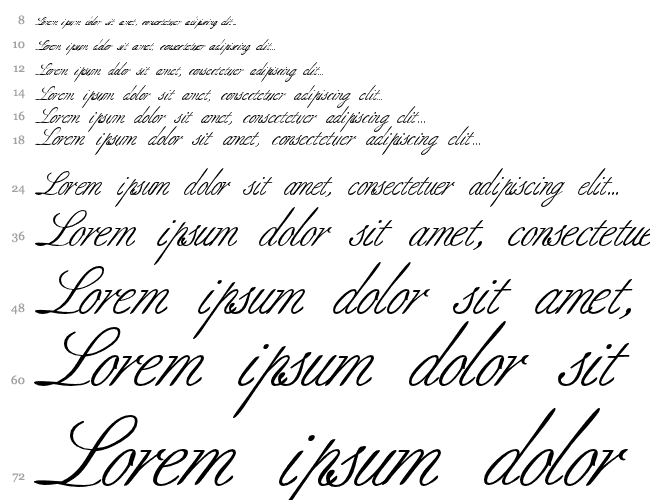 8 Lorem ipsum dolor sit amet, consectetuer adipiscing elit...
10 Lorem ipsum dolor sit amet, consectetuer adipiscing elit...
12 Lorem ipsum dolor sit amet, consectetuer adipiscing elit...
14 Lorem ipsum dolor sit amet, consectetuer adipiscing elit...
16 Lorem ipsum dolor sit amet, consectetuer adipiscing elit...
18 Lorem ipsum dolor sit amet, consectetuer adipiscing elit...
24 Lorem ipsum dolor sit amet, consectetuer adipiscing elit...
36 Lorem ipsum dolor sit amet, consectetue
48 Lorem ipsum dolor sit amet,
60 Lorem ipsum dolor sit
72 Lorem ipsum dolor